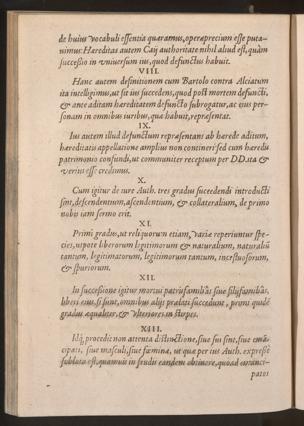 de huius vocabuli essentia quæramus, operæprecium esse puta-
uimus: Hæreditas autem Caij authoritate nihil aliud est, quàm
successio in vniuersum ius, quod defunctus habuit.
VIII.
Hanc autem definitionem cum Bartolo contra Alciatum
ita intelligimus, ut sit ius succedens, quod post mortem defuncti,
& ante aditam hæreditatem defuncto subrogatur, ac eius per-
sonam in omnibus iuribus, quæ habuit, repræsentat.
IX.
Ius autem illud defunctum repræsentans ab hærede aditum,
hæreditatis appellatione amplius non contineri: sed cum hæredis
patrimonio confundi, ut communiter receptum per DD. ita &
verius esse credimus.
X.
Cum igitur de iure Auth. tres gradus succedendi introducti
sint, descendentium, ascendentium, & collateralium, de primo
nobis iam sermo erit.
XI.
Primi gradus, ut reliquorum etiam, variæ reperiuntur spe-
cies, utpote liberorum legitimorum & naturalium, naturaliũ
tantùm, legitimatorum, legitimorum tantum, incestuosorum,
& spuriorum.
XII.
In successione igitur mortui patrisfamiliâs siue filijfamiliâs,
liberi eius, si sunt, omnibus alijs prælati succedunt, primi quidẽ
gradus æqualiter, & vlteriores in stirpes.
XIII.
Idq́ procedit non attenta distinctione, siue sui sint, siue emã-
cipati, siue masculi, siue fœminæ, ut quæ per ius Auth. expressè
sublata est, quamuis in feudis eandem obtinere, quoad emanci-
patos